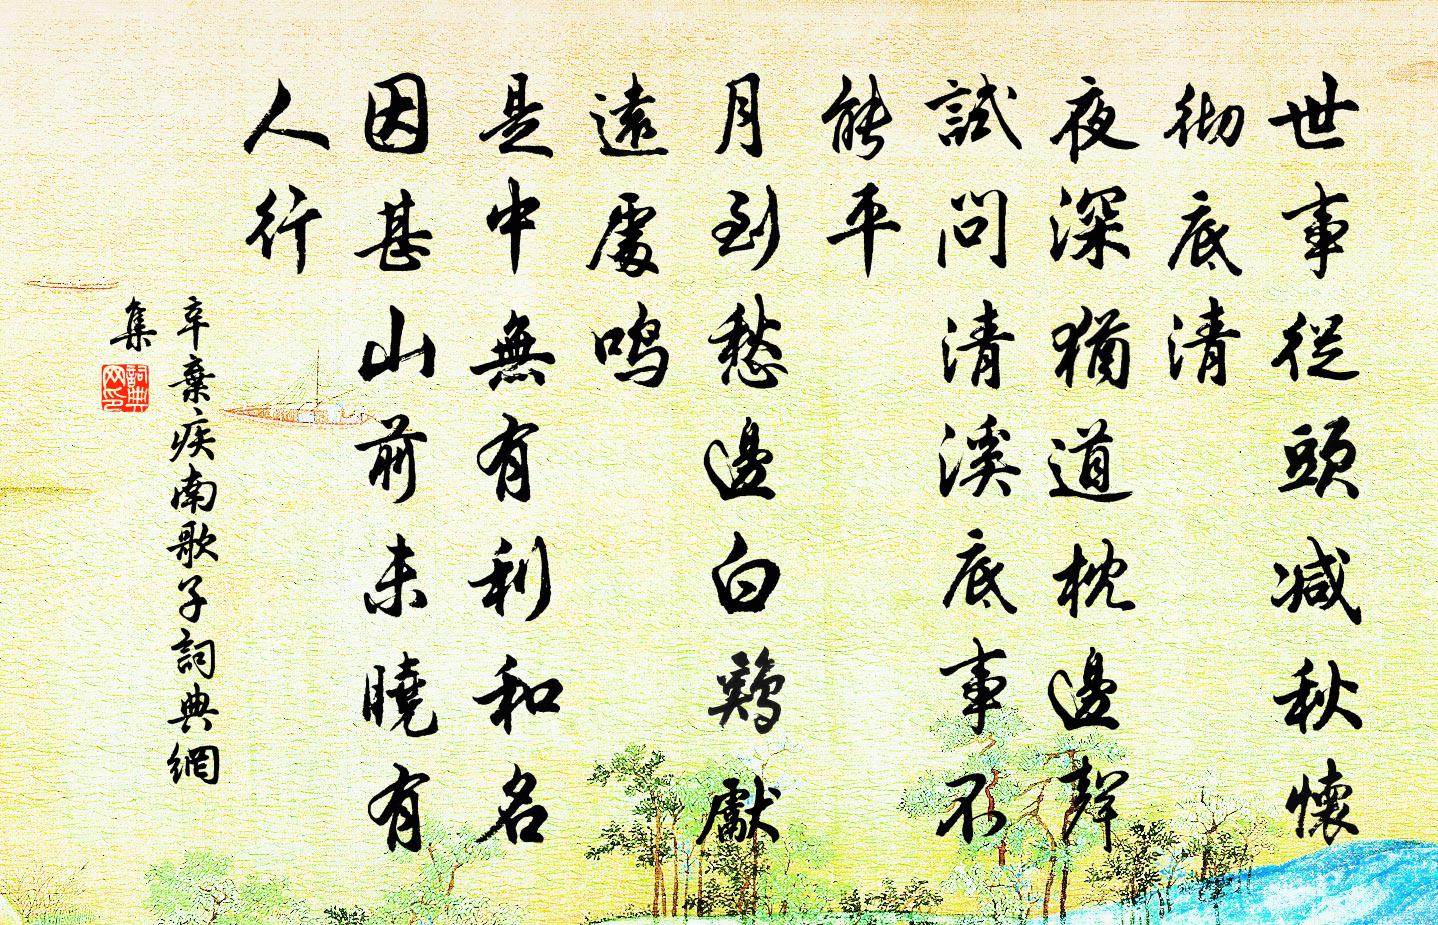 世事從頭減秋懷
彻底清
夜深猶道枕邊聲
試問清溪底事不
能平
月到愁邊白鷄獻
遠處鸣
是中無有利和名
因甚山前未曉有
人行
辛棄疾南歌子詞典網
集
詞典
网印